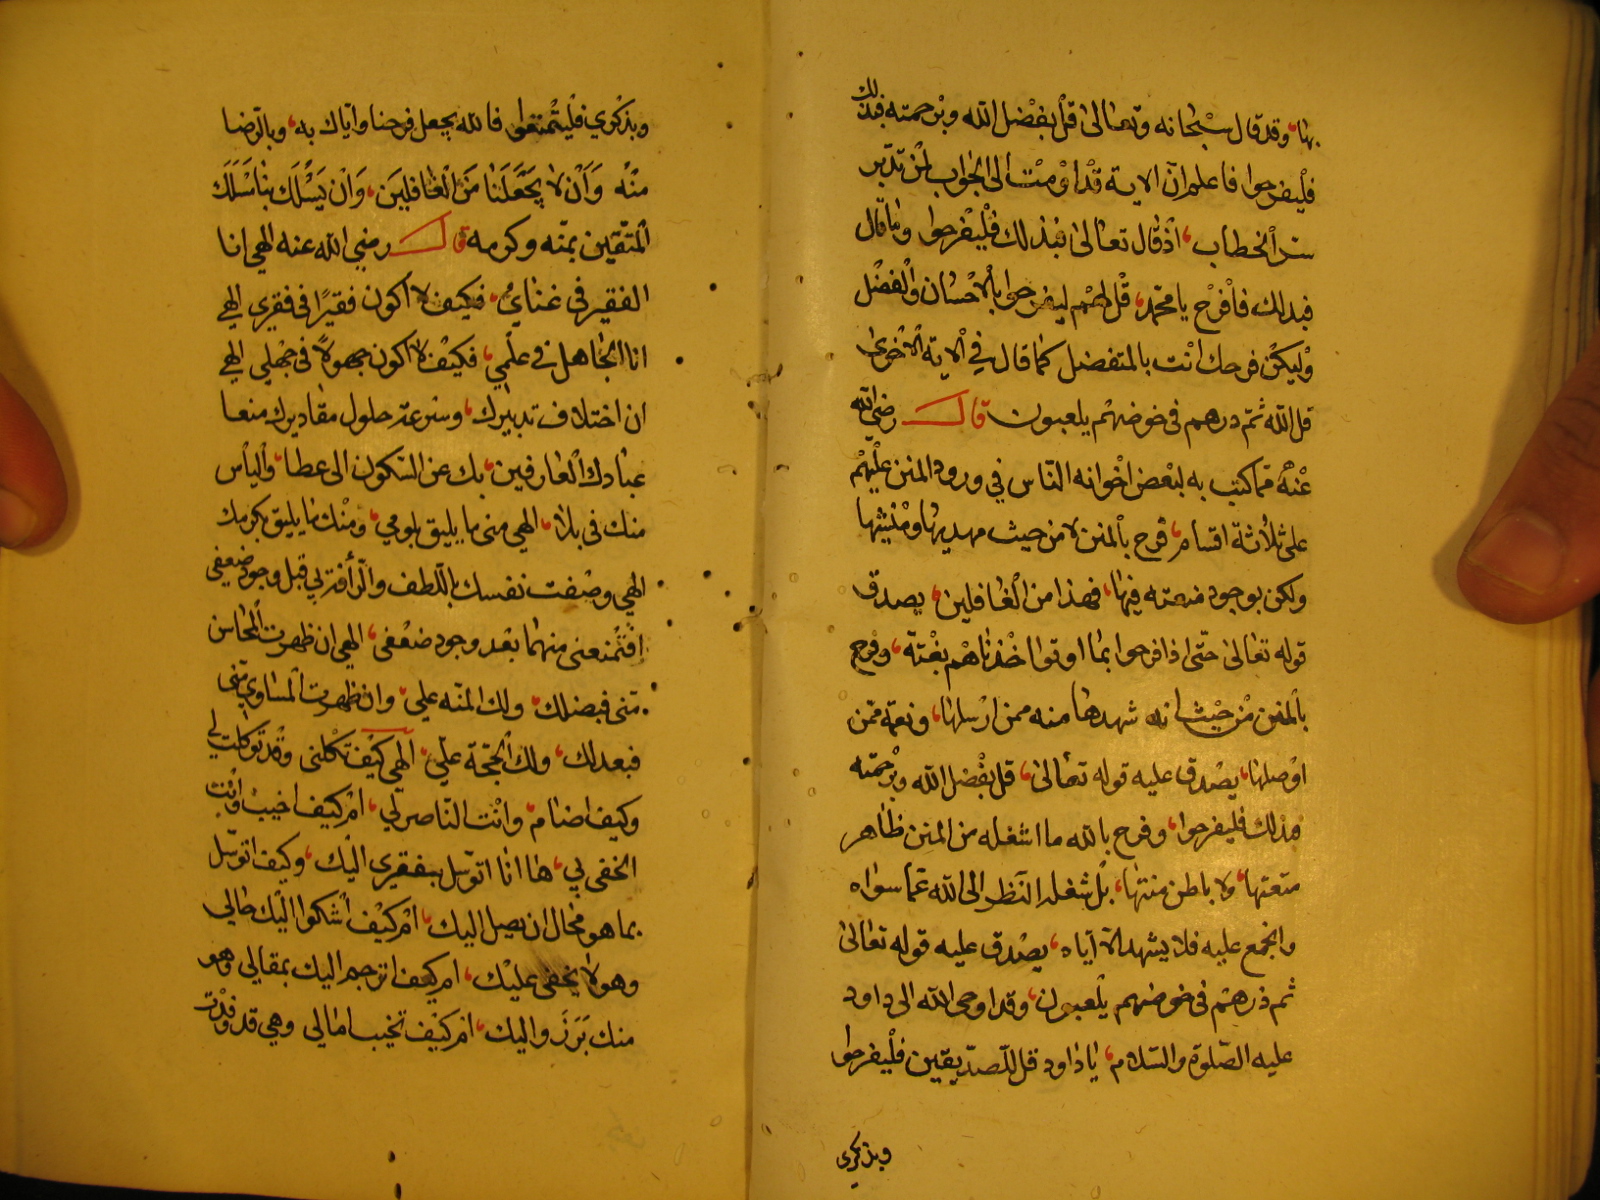 بها وقد قال سبحانه وتعالى قل بفضل الله وبرحمته فبذلك
فليفرحوا فاعلم ان الاية قد اومت الى الجواب لمن تدبر
سر الخطاب اذ قال تعالى فبذلك فليفرحوا وما قال
فبذلك فافرح يا محمد قل لهم ليفرحوا بالاحسان والفضل
وليكن فرحك انت بالمتفضل كما قال في الاية الاخرى
قل الله ثم درهم في خوضهم يلعبون قال رضي الله
عنه مما كتب به لبعض اخوانه الناس في ورود المنن عليهم
على ثلاثة اقسام فرح بالمنن لا من حيث مهديها ومنشيها
ولكن بوجود متعته فيها فهذا من الغافلين يصدق
قوله تعالى حتى اذا فرحوا بما اوتوا اخذناهم بغتة وفرح
بالمنن من حيث انه شهدها منه ممن ارسلها ونعمة ممن
اوصلها يصدق عليه قوله تعالى قل بفضل الله وبرحمته
فبذلك فليفرحوا وفرح بالله ما اشغله من المنن ظاهر
متعتها ولا باطن منتها بل شغله النظر الى الله عما سواه
والجمع عليه فلا يشهد الا اياه يصدق عليه قوله تعالى
ثم ذرهم في خوضهم يلعبون وقد اوحى الله الى داود
عليه الصلوة والسلام يا داود قل للصديقين فليفرحوا
وبذكرى
وبذكري فليتمتعوا فالله يجعل فرحنا واياك به وبالرضا
منه وان لا يجعلنا من الغافلين وان يسلك بنا مسلك
المتقين بمنه وكرمه قال رضي الله عنه الهي انا
الفقير في غنايي فكيف لا اكون فقيرا في فقري الهي
انا الجاهل في علمي فكيف لا اكون جهولا في جهلي الهي
ان اختلاف تدبيرك وسرعة حلول مقاديرك منعا
عبادك العارفين بك عن السكون الى عطا والياس
منك في بلاء الهي مني ما يليق بلومي ومنك ما يليق بكرمك
الهي وصفت نفسك باللطف والرأفة بي قبل وجود ضعفي
افتمنعني منهما بعد وجود ضعفي الهي ان ظهرت المحاسن
مني فبفضلك ولك المنه علي وان ظهرت المساوي مني
فبعدلك ولك الحجة علي الهي كيف تكلني وقد توكلت لي
وكيف اضام وانت الناصر لي ام كيف اخيب وانت
الخفي بي ها انا اتوسل بفقري اليك وكيف اتوسل
بما هو محال ان يصل اليك ام كيف اشكوا اليك حالي
وهو لا يخفى عليك ام كيف اترجم اليك بمقالي وهو
منك برز واليك ام كيف تخيب امالي وهي قد وفدت